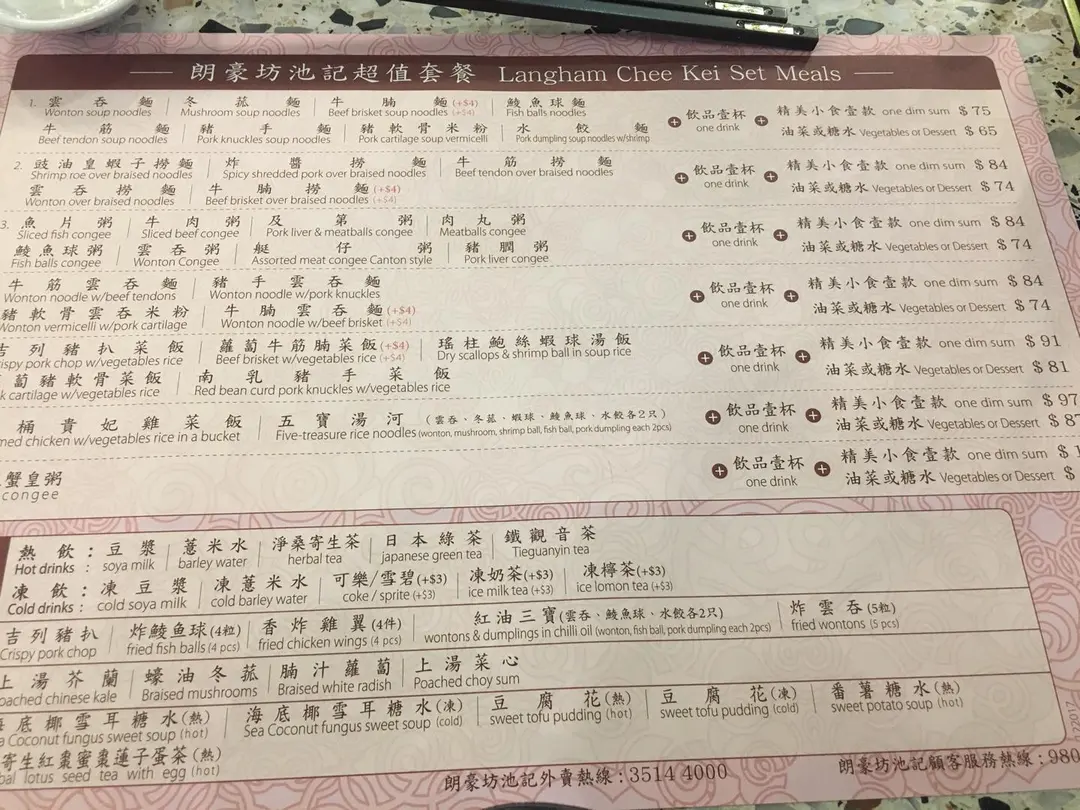 朗豪坊池記超值套餐 Langham Chee Kei Set Meals
1. 雲吞麵 冬菰麵 牛腩麵(+$4) 鯪魚球麵
Wonton soup noodles Mushroom soup noodles Beef brisket soup noodles (+$4) Fish balls noodles
牛筋麵 豬手麵 豬軟骨米粉 水餃麵
Beef tendon soup noodles Pork knuckles soup noodles Pork cartilage soup vermicelli Pork dumpling soup noodles w/shrimp
+ 飲品壹杯 + 精美小食壹款 one dim sum $75
one drink 油菜或糖水 Vegetables or Dessert $65
2. 豉油皇蝦子撈麵 炸醬撈麵 牛筋撈麵
Shrimp roe over braised noodles Spicy shredded pork over braised noodles Beef tendon over braised noodles
雲吞撈麵 牛腩撈麵(+$4)
Wonton over braised noodles Beef brisket over braised noodles (+$4)
+ 飲品壹杯 + 精美小食壹款 one dim sum $84
one drink 油菜或糖水 Vegetables or Dessert $74
3. 魚片粥 牛肉粥 及第粥 肉丸粥
Sliced fish congee Sliced beef congee Pork liver & meatballs congee Meatballs congee
鯪魚球粥 雲吞粥 艇仔粥 豬膶粥
Fish balls congee Wonton Congee Assorted meat congee Canton style Pork liver congee
+ 飲品壹杯 + 精美小食壹款 one dim sum $84
one drink 油菜或糖水 Vegetables or Dessert $74
牛筋雲吞麵 豬手雲吞麵
Wonton noodle w/beef tendons Wonton noodle w/pork knuckles
豬軟骨雲吞米粉 牛腩雲吞麵(+$4)
Wonton vermicelli w/pork cartilage Wonton noodle w/beef brisket (+$4)
+ 飲品壹杯 + 精美小食壹款 one dim sum $84
one drink 油菜或糖水 Vegetables or Dessert $74
吉列豬扒菜飯 蘿蔔牛筋腩菜飯(+$4) 瑤柱鮑絲蝦球湯飯
pork chop w/vegetables rice Beef brisket w/vegetables rice (+$4) Dry scallops & shrimp ball in soup rice
蔔豬軟骨菜飯 南乳豬手菜飯
cartilage w/vegetables rice Red bean curd pork knuckles w/vegetables rice
+ 飲品壹杯 + 精美小食壹款 one dim sum $91
one drink 油菜或糖水 Vegetables or Dessert $81
桶貴妃雞菜飯 五寶湯河 (雲吞、冬菰、蝦球、鯪魚球、水餃各2只)
chicken w/vegetables rice in a bucket Five-treasure rice noodles (wonton, mushroom, shrimp ball, fish ball, pork dumpling each 2pcs)
+ 飲品壹杯 + 精美小食壹款 one dim sum $97
one drink 油菜或糖水 Vegetables or Dessert $
蟹皇粥
congee
+ 飲品壹杯 + 精美小食壹款 one dim sum $
one drink 油菜或糖水 Vegetables or Dessert $
熱飲： 豆漿 薏米水 淨桑寄生茶 日本綠茶 鐵觀音茶
Hot drinks： soya milk barley water herbal tea japanese green tea Tieguanyin tea
凍飲： 凍豆漿 凍薏米水 可樂/雪碧(+$3) 凍奶茶(+$3) 凍檸茶(+$3)
Cold drinks： cold soya milk cold barley water coke / sprite (+$3) ice milk tea (+$3) ice lomon tea (+$3)
吉列豬扒 炸鯪魚球(4粒) 香炸雞翼(4件) 紅油三寶(雲吞、鯪魚球、水餃各2只) 炸雲吞(5粒)
Crispy pork chop fried fish balls (4 pcs) fried chicken wings (4 pcs) wontons & dumplings in chilli oil (wonton, fish ball, pork dumpling each 2pcs) fried wontons (5 pcs)
上湯芥蘭 蠔油冬菰 腩汁蘿蔔 上湯菜心
chinese kale Braised mushrooms Braised white radish Poached choy sum
海底椰雪耳糖水(熱) 海底椰雪耳糖水(凍) 豆腐花(熱) 豆腐花(凍) 番薯糖水(熱)
Coconut fungus sweet soup (hot) Sea Coconut fungus sweet soup (cold) sweet tofu pudding (hot) sweet tofu pudding (cold) sweet potato soup (hot)
寄生紅棗蜜棗蓮子蛋茶(熱)
lotus seed tea with egg (hot)
朗豪坊池記外賣熱線：3514 4000
朗豪坊池記顧客服務熱線：980